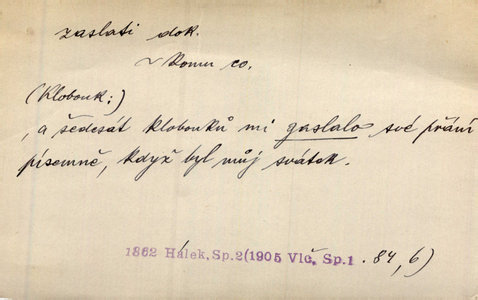 zaslati dok.
~ komu co.
(Klobouk:)
, a šedesát klobouků mi zaslalo své přání
písemně, když byl můj svátek.
1862 Hálek, Sp.2(1905 Vlč, Sp.1 . 84, 6)